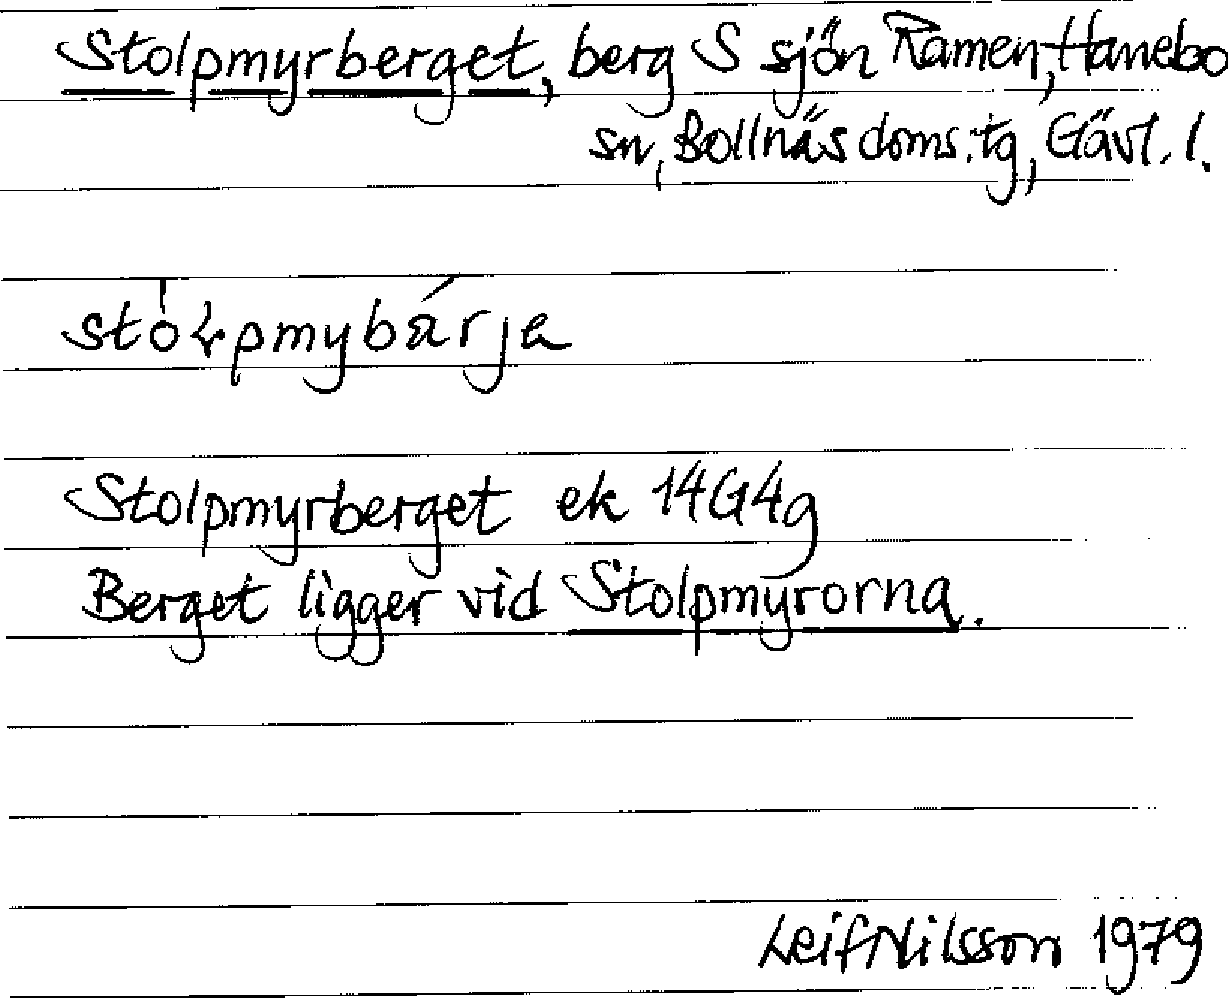 Stolpmyrberget, berg S sjön Ramen, Hanebo
sn, Bollnäs doms.tg, Gävl. l.
Stolpmyrberget ek 14G4g
Berget ligger vid Stolpmyrorna.
Leif Nilsson 1979